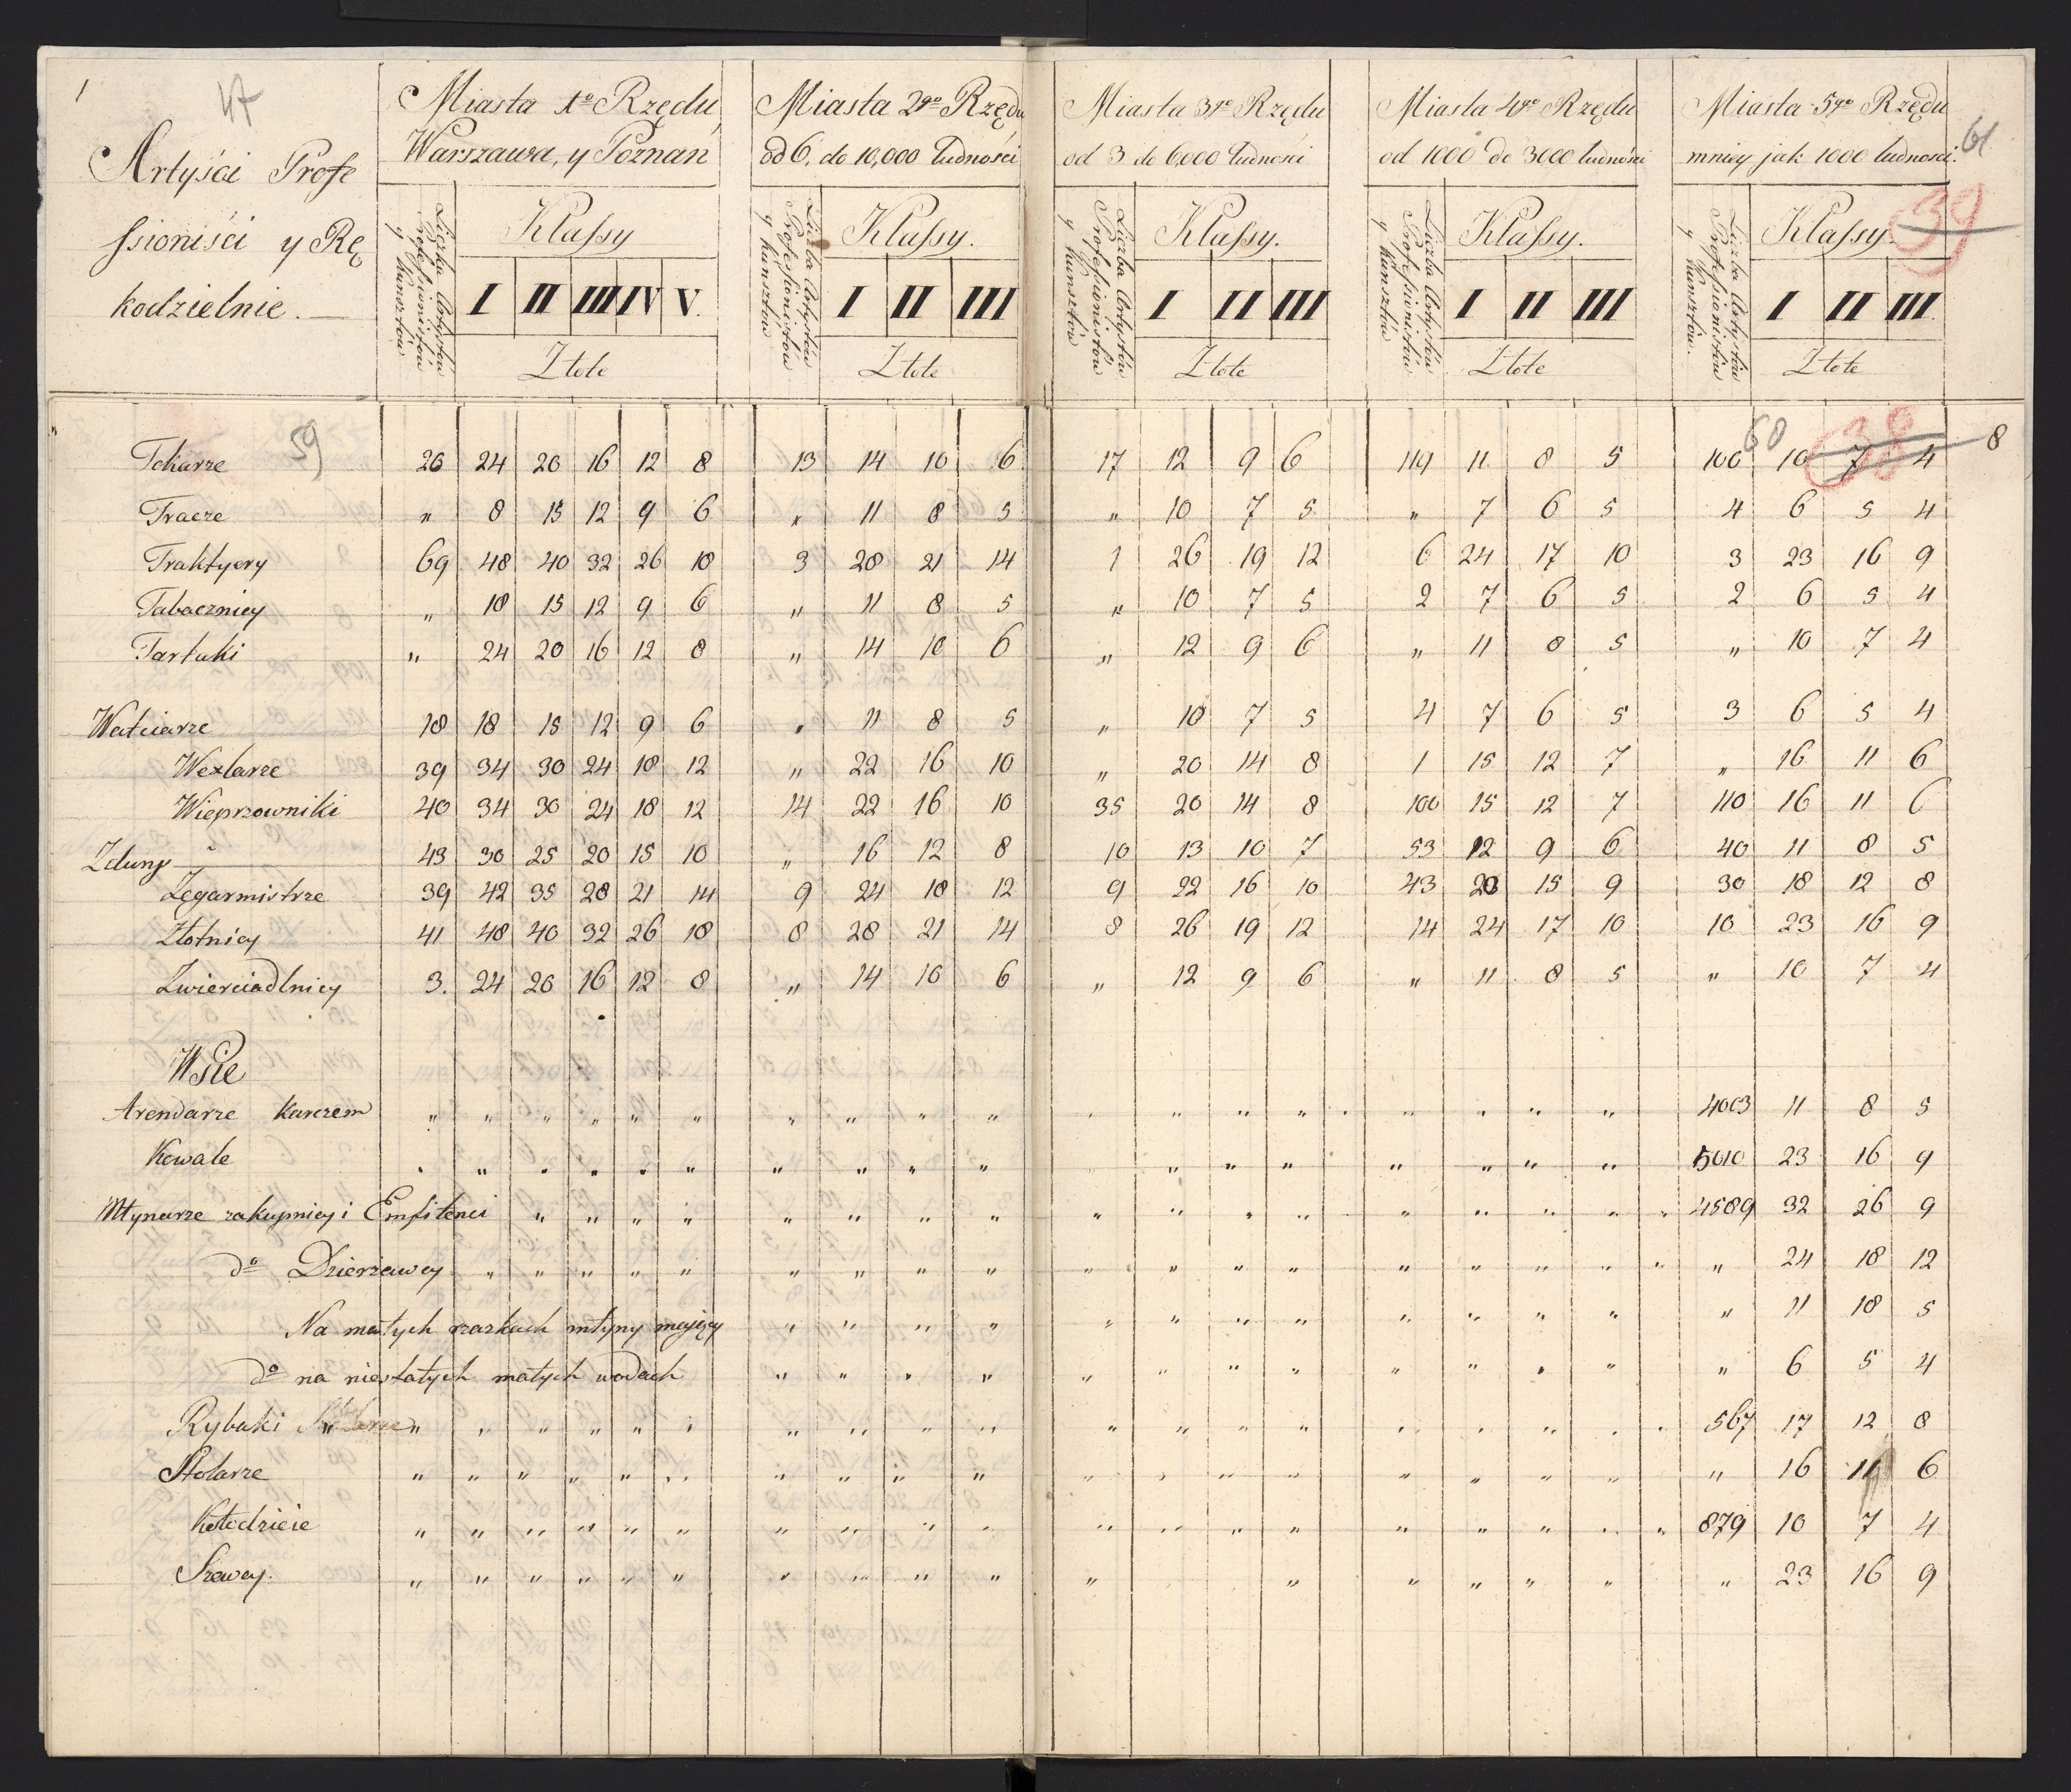 1
47
Artyści Profe
ssioniści y Rę
kodzielnie.
Miasta 1º Rzędu
Warszawa, y Poznań
Miasta 2go Rzędu
od 6. do 10,000 ludności
Miasta 3go Rzędu
od 3 do 6,000 ludności
Miasta 4go Rzędu
od 1000 do 3000 ludności
Miasta 5go Rzędu
mniey jak 1000 ludności.
61
39
Liczba Artystów Professionistów y Kunsztów Klassy I II III IV V. Złote
Liczba Artystów Professionistów y Kunsztów Klassy. I II III Złote
Liczba Artystów Professionistów y Kunsztów Klassy. I II III Złote
Liczba Artystów Professionistów y Kunsztów Klassy. I II III Złote
Liczba Artystów Professionistów y Kunsztów. Klassy. I II III. Złote
59
60
38
8
Tokarze 26 24 20 16 12 8 13 14 10 6 17 12 9 6 114 11 8 5 100 10 7 4
Tracze " 8 15 12 9 6 " 11 8 5 " 10 7 5 " 7 6 5 4 6 5 4
Traktyery 69 48 40 32 26 18 3 28 21 14 1 26 19 12 6 24 17 10 3 23 16 9
Tabacznicy " 18 15 12 9 6 " 11 8 5 " 10 7 5 2 7 6 5 2 6 5 4
Tartuki " 24 20 16 12 8 " 14 10 6 " 12 9 6 " 11 8 5 " 10 7 4
Watiarze 18 18 15 12 9 6 " 11 8 5 " 10 7 5 4 7 6 5 3 6 5 4
Wexlarze 39 34 30 24 18 12 " 22 16 10 " 20 14 8 1 15 12 7 " 16 11 6
Wieprzowniki 40 34 30 24 18 12 14 22 16 10 35 20 14 8 100 15 12 7 110 16 11 6
Zduny 43 30 25 20 15 10 " 16 12 8 10 13 10 7 53 12 9 6 40 11 8 5
Zegarmistrze 39 42 35 28 21 14 9 24 18 12 9 22 16 10 43 20 15 9 30 18 12 8
Złotnicy 41 48 40 32 26 18 8 28 21 14 8 26 19 12 14 24 17 10 10 23 16 9
Zwierciadlnicy 3. 24 20 16 12 8 " 14 10 6 " 12 9 6 " 11 8 5 " 10 7 4
Wsie
Arendarze Karczem " " " " " " " " " " " " " " " " " " 4003 11 8 5
Kowale " " " " " " " " " " " " " " " " " 5010 23 16 9
Młynarze zakupnicy i Emfitenci " " " " " " " " " " " " " " " " 4589 32 26 9
dº Dzierzawcy " " " " " " " " " " " " " " " " " " 24 18 12
Na małych rzazkach młyny mający " " " " " " " " " " " " " 11 18 5
dº na niestałych małych wodach " " " " " " " " " " " " " 6 5 4
Rybaki " " " " " " " " " " " " " " " " " " 567 17 12 8
Stolarze " " " " " " " " " " " " " " " " " " " 16 11 6
Kołodzieie " " " " " " " " " " " " " " " " " " 879 10 7 4
Szewcy. " " " " " " " " " " " " " " " " " 23 16 9